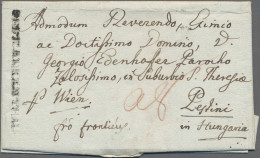 Admodum Reverendo, Eximio
ac Doctissimo Domino, D
Georgio Pedenhofer Parocho
Zelosissimo, ex Suburbio S. Theresiæ
p Wien. Pestini
pro frontiera in Hungaria